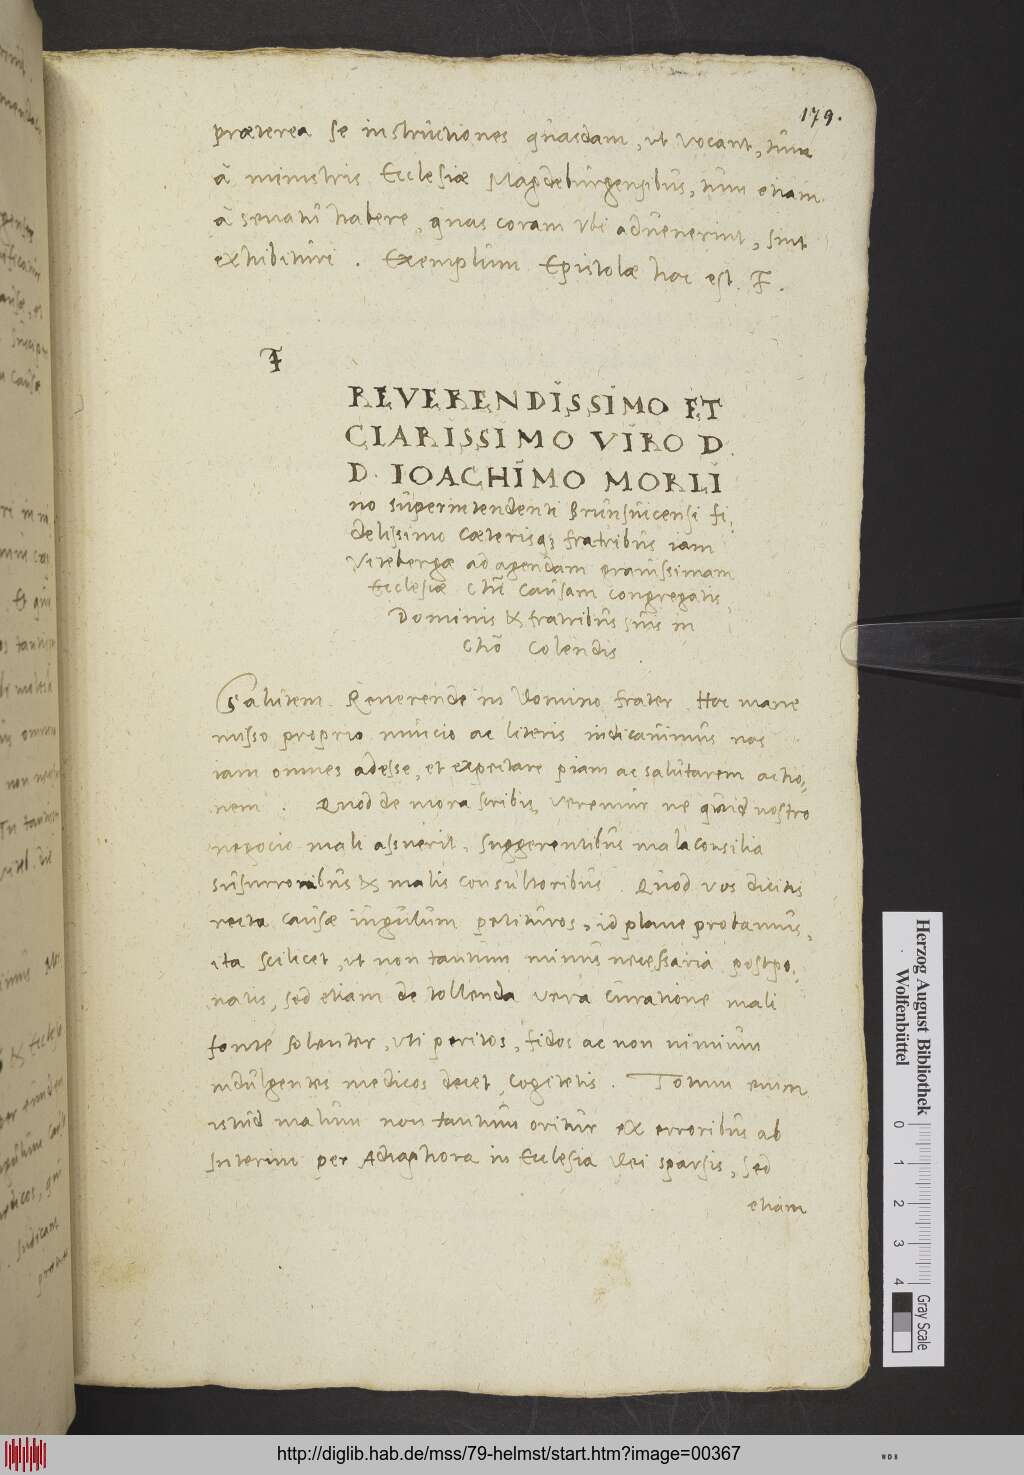 179.
præterea se instructiones quasdam, ut vocant, tum
à ministris Ecclesiæ Magdeburgensibus, tum etiam
à senatu habere, quas coram ubi advenerint, sint
exhibituri. Exemplum Epistolæ hoc est. F.
F
REVERENDISSIMO ET
CLARISSIMO VIRO D.
D. IOACHIMO MORLI
no superintendenti Brunsvicensi fi,
delissimo cæterisq; fratribus iam
Vitebergæ ad agendam gravissimam
Ecclesiæ Chri causam congregatis,
Dominis & fratribus suis in
Chro Colendis
Salutem. Reverende in Domino frater. Hoc mane
misso proprio nuncio ac literis indicavimus nos
iam omnes adesse, et expectare piam ac salutarem actio=
nem. Quod de mora scribis, veremur ne quid nostro
negocio mali assuerit, suggerentibus mala consilia
susurronibus & malis consultoribus. Quod vos dicitis
recta causæ iugulum petituros, id plane probamus,
ita scilicet, ut non tantum minus necessaria postpo,
natis, sed etiam de tollenda vera curatione mali
fonte solenter, uti peritos, fidos ac non nimium
indulgentes medicos decet, cogitetis. Totum enim
istud malum non tantum oritur ex erroribus ab
Interim per Adiaphora in Ecclesia Dei sparsis, sed
etiam
Herzog August Bibliothek
Wolfenbüttel
0 1 2 3 4
Gray Scale
http://diglib.hab.de/mss/79-helmst/start.htm?image=00367
WDB